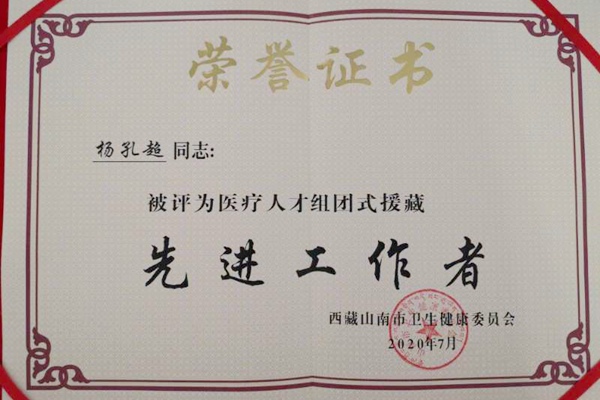 荣誉证书
杨孔超 同志:
被评为医疗人才组团式援藏
先进工作者
西藏山南市卫生健康委员会
2020年7月